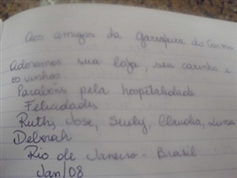 Aos amigos da Garrafeira do Carmo
Adoramos sua loja, seu carinho e
os vinhos.
Parabens pela hospitalidade
Felicidades
Ruth, Jose, Suely, Claudia, Luiza
Deborah
Rio de Janeiro - Brasil
Jan/08